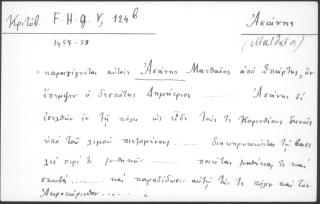 Κριτόβ. F.H.G. V, 124ᵇ Ἀσάνης
1457-58 (Ματθαῖος)
" παραγίγνεται αὐτοῖς Ἀσάνης Ματθαῖος ἀπὸ Σπάρτης, ὃν
ἔπεμψεν ὁ δεσπότης Δημήτριος ........ Ἀσάνης δὲ
ἐσελθὼν ἐν τῇ πόλει ὡς εἶδε τούς τε Κορινθίους δεινῶς
ὑπὸ τοῦ λιμοῦ πιεζομένους ...... διακηρυκεύεται τῷ βασι
λεῖ περὶ ξυμβάσεων ...... ποιεῖται ξυμβάσεις τε καὶ
σπονδὰς ..... καὶ παραδίδωσιν αὐτῷ τήν τε πόλιν καὶ τὸν
Ἀκροκόρινθον ..... "